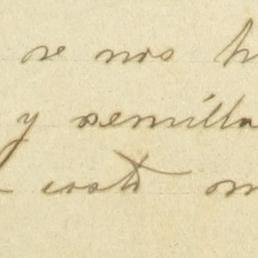 se nos h
y semilla
costo m